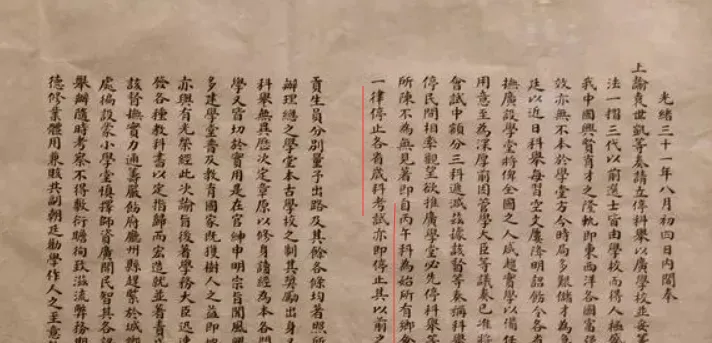 光緒三十一年八月初四日內閣奉
上諭袁世凱等奏請立停科舉以廣學校並妥等
法一摺三代以前選士皆由學校而得人極盛
我中國興賢育才之隆軌即東西洋各國富強
效亦無不本於學堂方今時局多艱儲才為急
廷以近日科舉每習空文屢降明詔飭令各省
撫廣設學堂將俾全國之人咸趨實學以備任
用意至為深厚前因管學大臣等議奏已准將
會試中額分三科遞減茲據該督等奏稱科舉
停民間相率觀望欲推廣學堂必先停科舉等
所陳不為無見著即自丙午科為始所有鄉會
一律停止各省歲科考試亦即停止其以前之
貢生員分別量予出路及其餘各條均著照所
辦理總之學堂本古學校之制其獎勵出身又
科舉無異歷次定章原以修身讀經為本各門
學又皆切於實用是在官紳申明宗旨聞風興
多建學堂普及教育國家既獲樹人之益即地
亦與有光榮經此次諭旨後著學務大臣迅速
發各種教科書以定指歸而宏造就並著責成
該督撫實力通籌嚴飭府廳州縣趕緊於城鄉
處徧設蒙小學堂慎擇師資廣開民智其各認
舉辦隨時考察不得敷衍瞻徇致滋流弊務期
德修業體用兼賅共副朝廷勸學作人之至意